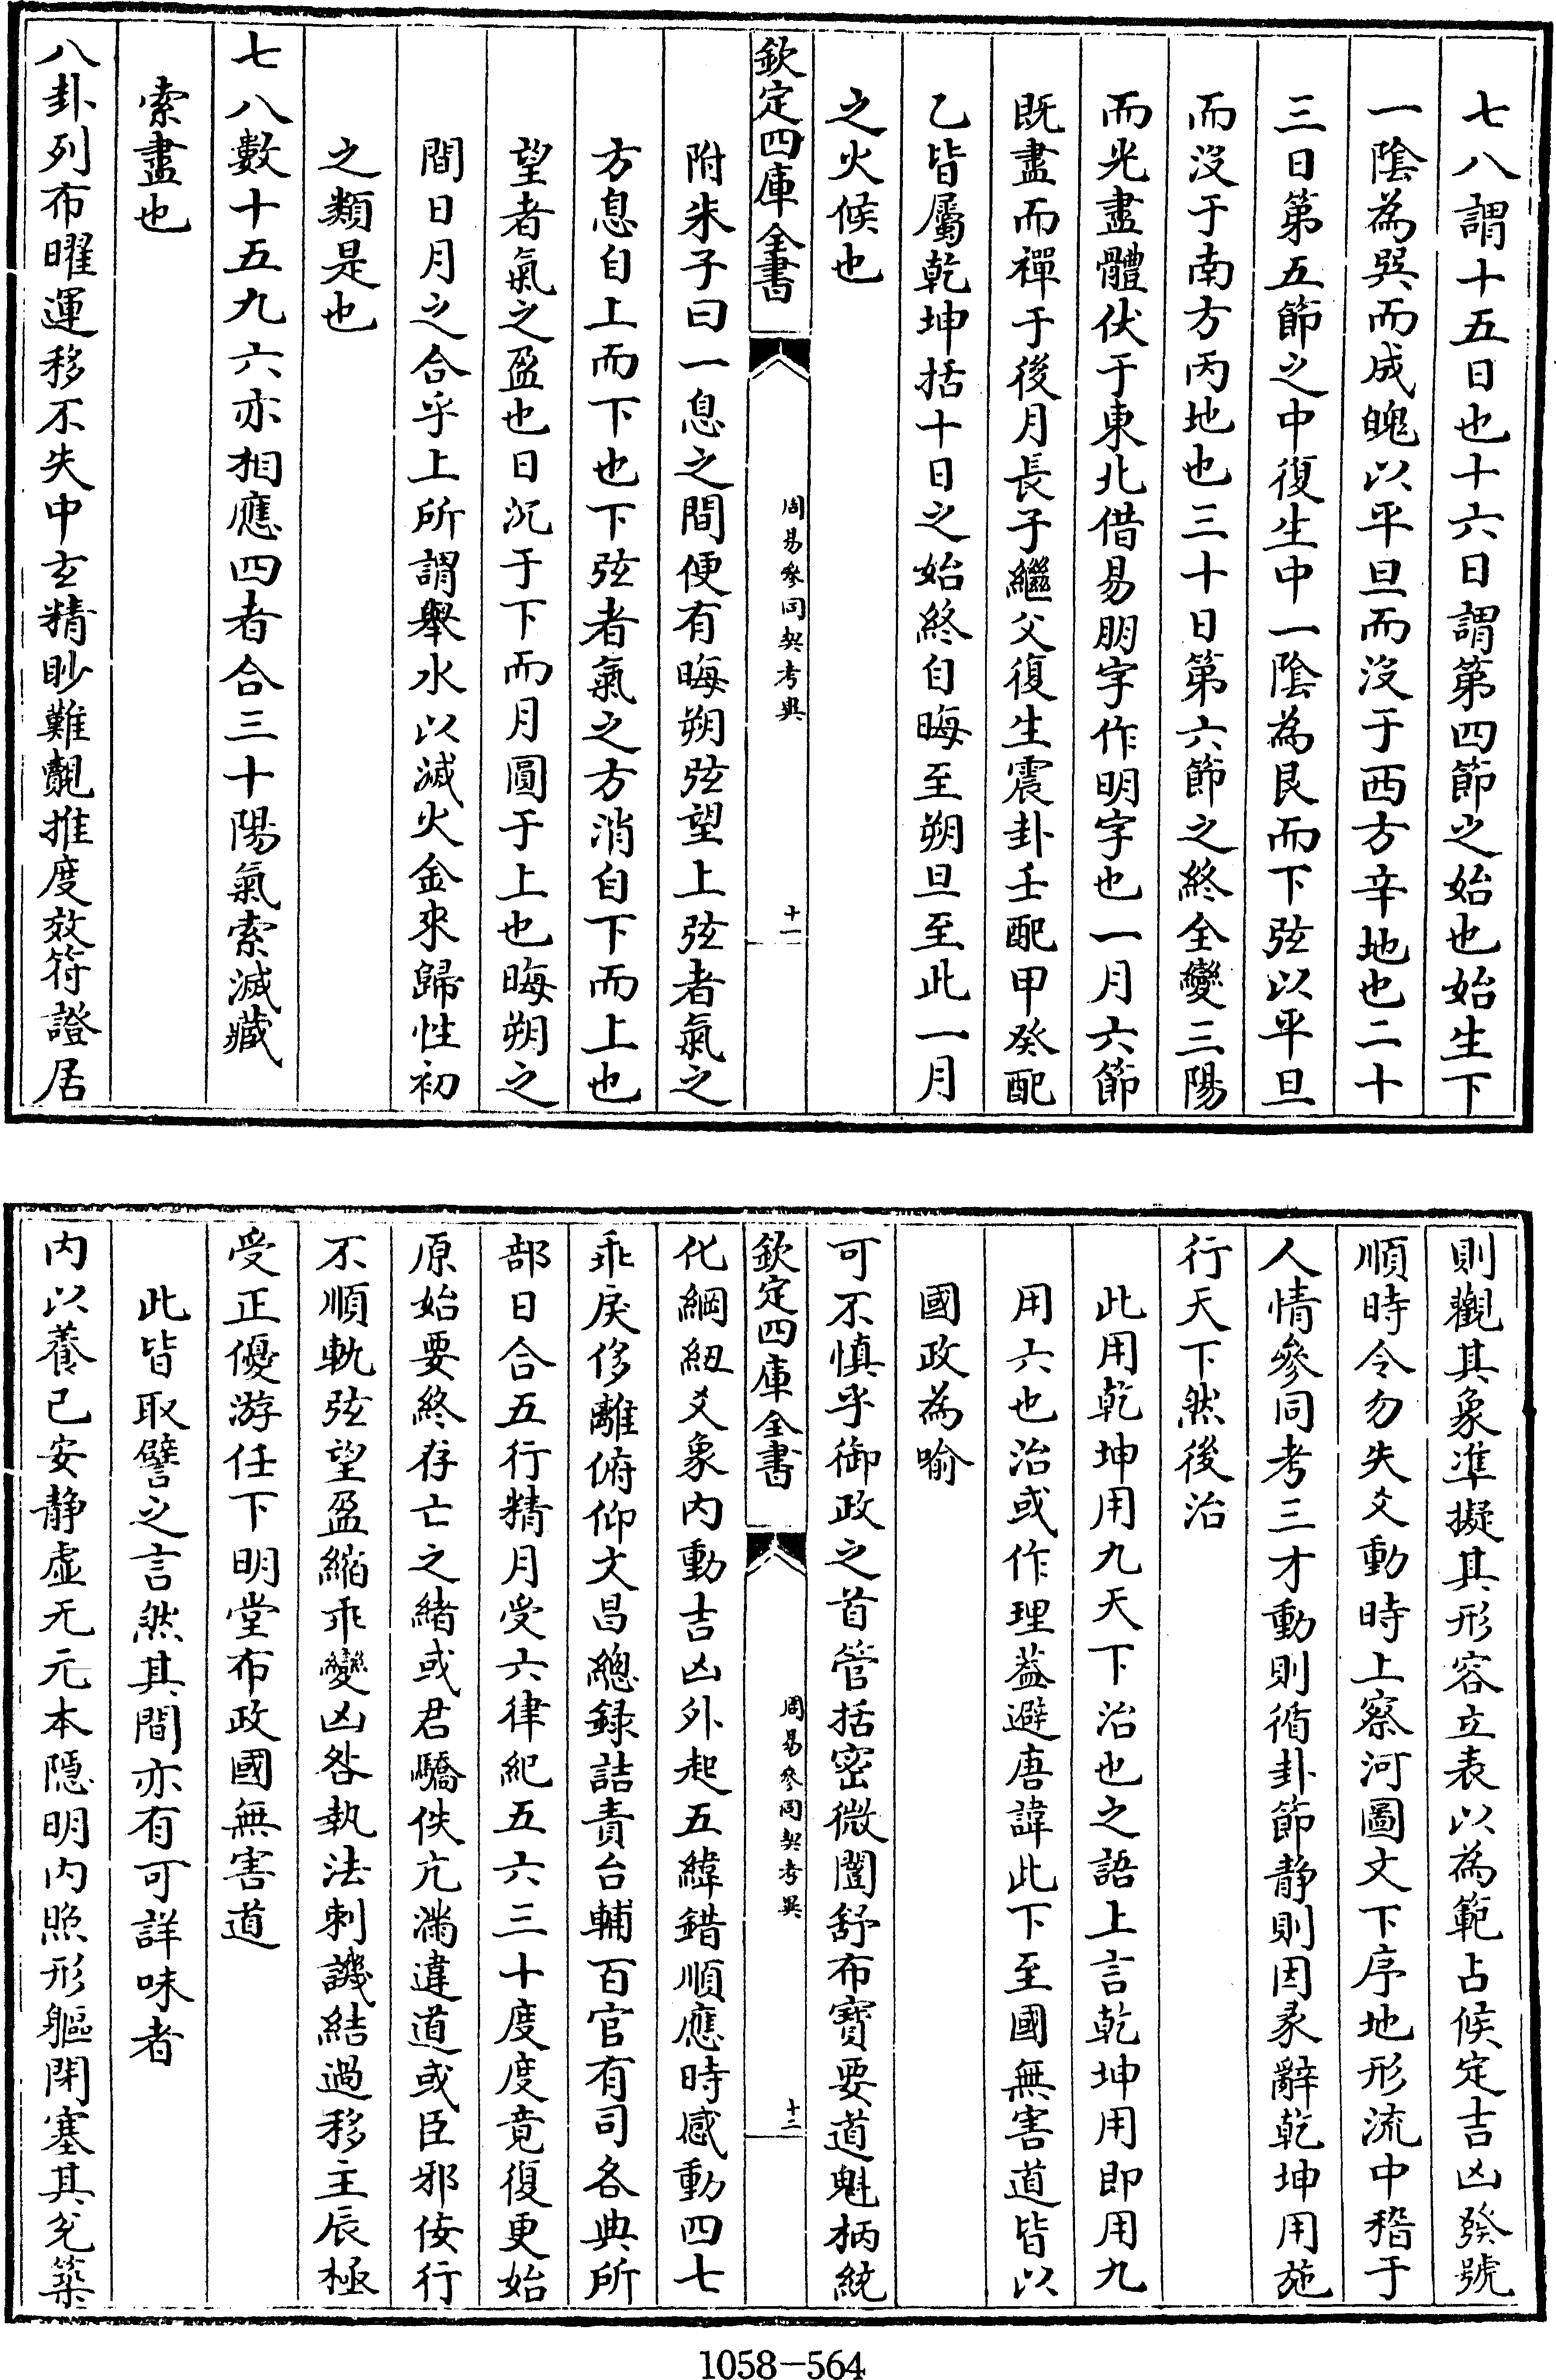 七八謂十五日也十六日謂第四節之始也始生下
一陰為巽而成魄以平旦而沒于西方辛地也二十
三日第五節之中復生中一陰為艮而下弦以平旦
而沒于南方丙地也三十日第六節之終全變三陽
而光盡體伏于東北借易朋字作明字也一月六節
既盡而禪于後月長子繼父復生震卦壬配甲癸配
乙皆屬乾坤括十日之始終自晦至朔旦至此一月
之火候也
欽定四庫全書
周易參同契考異
十一
附朱子曰一息之間便有晦朔弦望上弦者氣之
方息自上而下也下弦者氣之方消自下而上也
望者氣之盈也日沉于下而月圓于上也晦朔之
間日月之合乎上所謂舉水以滅火金來歸性初
之類是也
七八數十五九六亦相應四者合三十陽氣索滅藏
索盡也
八卦列布曜運移不失中玄精眇難覩推度效符證居
則觀其象準擬其形容立表以為範占候定吉凶發號
順時令勿失爻動時上察河圖文下序地形流中稽于
人情參同考三才動則循卦節静則因彖辭乾坤用施
行天下然後治
此用乾坤用九天下治也之語上言乾坤用即用九
用六也治或作理葢避唐諱此下至國無害道皆以
國政為喻
可不慎乎御政之首管括密微闓舒布寳要道魁柄統
欽定四庫全書
周易參同契考異
十二
化綱紐爻象内動吉凶外起五緯錯順應時感動四七
乖戾侈離俯仰文昌總録詰責台輔百官有司各典所
部日合五行精月受六律紀五六三十度度竟復更始
原始要終存亡之緒或君驕佚亢滿違道或臣邪佞行
不順軌弦望盈縮乖變凶咎執法刺譏結過移主辰極
受正優游任下明堂布政國無害道
此皆取譬之言然其間亦有可詳味者
内以養己安静虚无元本隱明内照形軀閉塞其兌築
1058-564